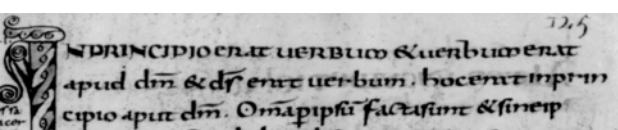 INPRINCIPIO erat uerbum & uerbum erat
apud dm̄ & dſ̄ erat uerbum. hoc erat inprin
cipio aput dm̄. Om̄a ꝑ ipſū facta sunt & sine ip